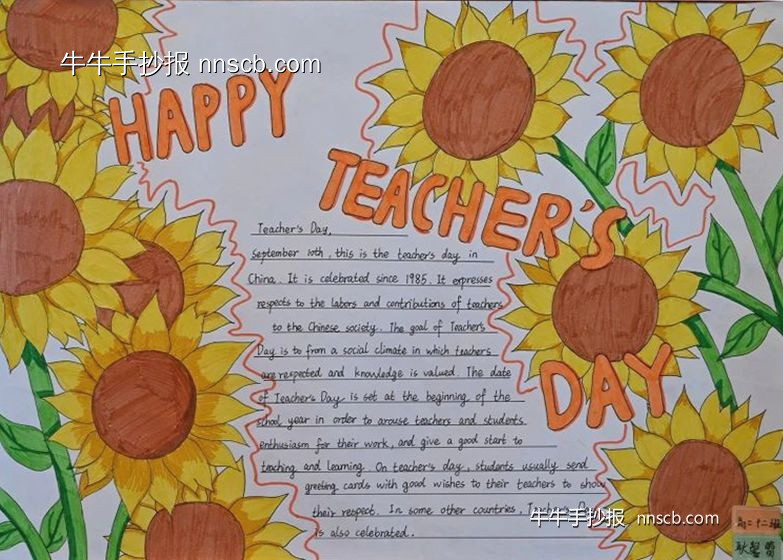 牛牛手抄报 nnscb.com
HAPPY
TEACHER'S
DAY
Teacher's Day,
September 10th, this is the teacher's day in
China. It is celebrated since 1985. It expresses
respects to the labors and contributions of teachers
to the Chinese society. The goal of Teachers
Day is to from a social climate in which teachers
are respected and knowledge is valued. The date
of Teacher's Day is set at the beginning of the
school year in order to arouse teachers and students
enthusiasm for their work, and give a good start to
teaching and learning. On teacher's day, students usually send
greeting cards with good wishes to their teachers to show
their respect. In some other countries, Teacher's Day
is also celebrated.
牛牛手抄报 nnscb.com
高二十二班